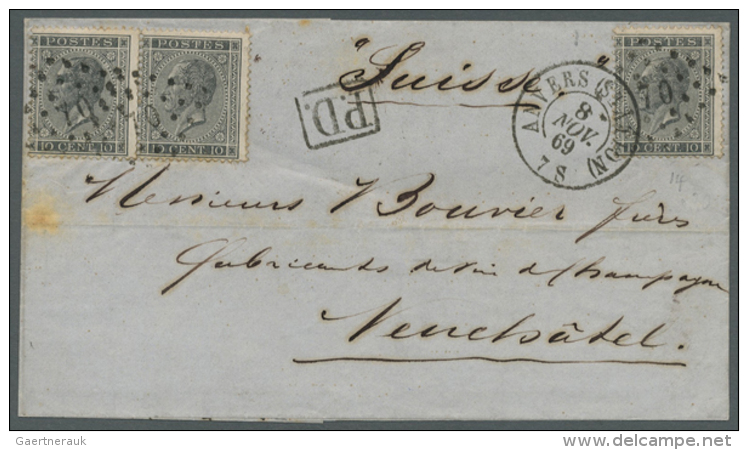 POSTES
POSTES
POSTES
10 CENT. 10
10 CENT. 10
10 CENT. 10
70
70
"Suisse"
P.D.
ANVERS (STATION NORD)
8
NOV.
69
7 S
14
Messieurs Bouvier frères
fabricants de vin de Champagne
Neuchâtel.
Gaertnerauk
delcampe.net